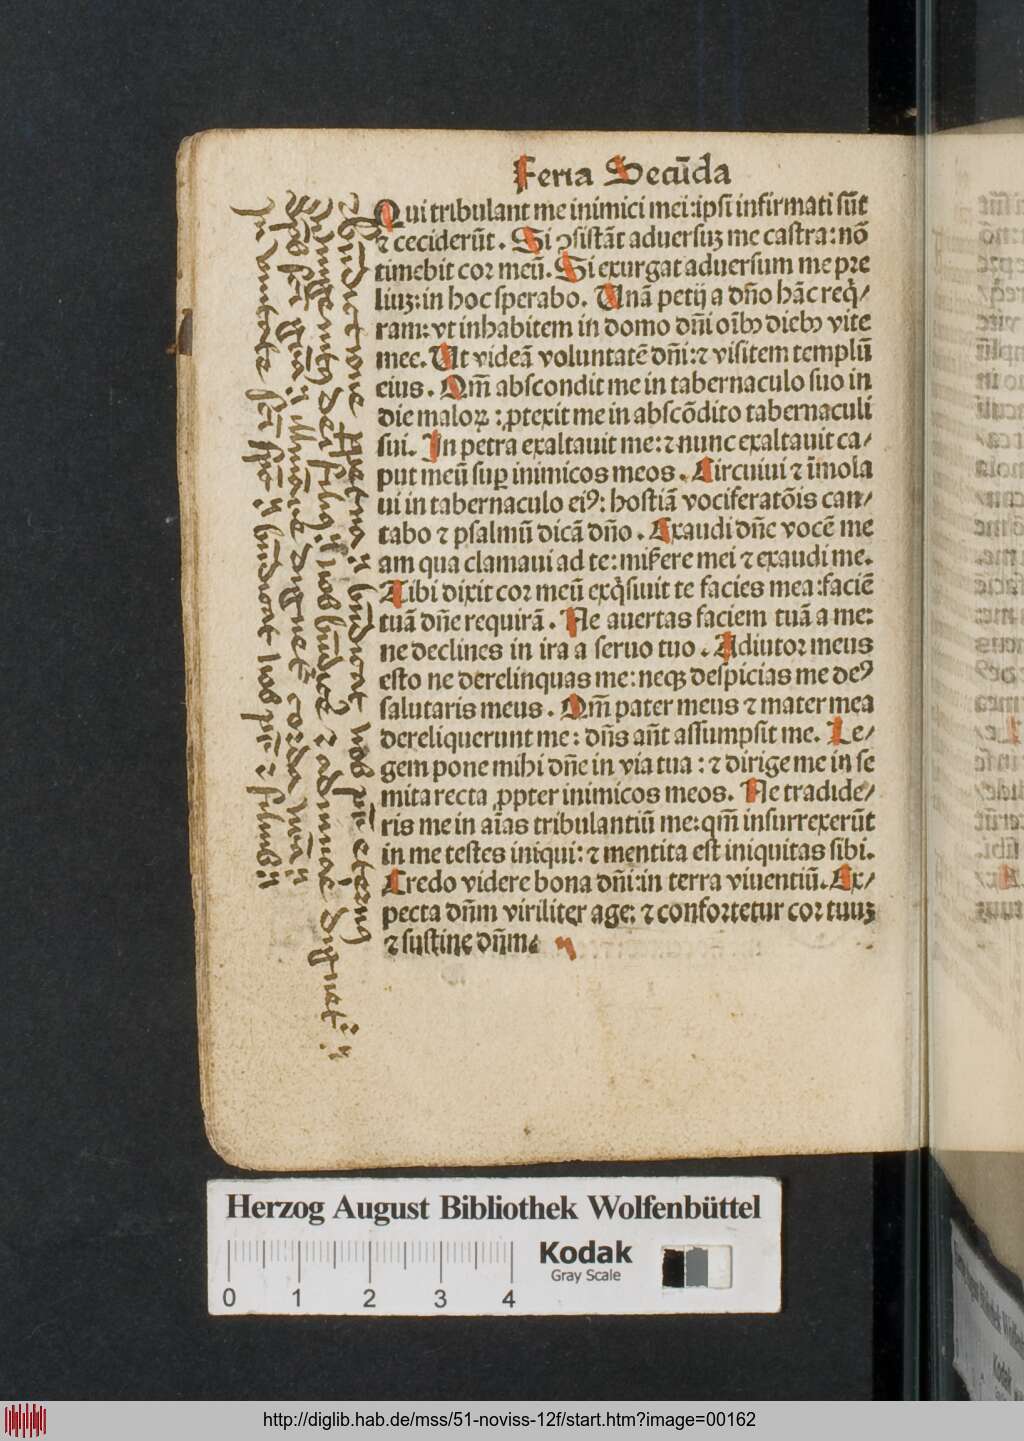 Feria Secūda
Qui tribulant me inimici mei: ipsi infirmati sūt
⁊ ceciderūt. Si ꝯsistāt aduersuꝫ me castra: nō
timebit cor meū. Si exurgat aduersum me pre
liuꝫ: in hoc sperabo. Unā petij a dn̄o hāc req̇/
ram: vt inhabitem in domo dn̄i oīb9 dieb9 vite
mee. Ut videā voluntatē dn̄i: ⁊ visitem templū
eius. Qm̄ abscondit me in tabernaculo suo in
die maloꝝ: ꝓtexit me in abscōdito tabernaculi
sui. In petra exaltauit me: ⁊ nunc exaltauit ca/
put meū suꝑ inimicos meos. Circuiui ⁊ īmola
ui in tabernaculo ei9: hostiā vociferatōis can/
tabo ⁊ psalmū dicā dn̄o. Exaudi dn̄e vocē me
am qua clamaui ad te: mis̄ere mei ⁊ exaudi me.
Tibi dixit cor meū exq̇siuit te facies mea: faciē
tuā dn̄e requirā. Ne auertas faciem tuā a me:
ne declines in ira a seruo tuo. Adiutor meus
esto ne derelinquas me: neqꝫ despicias me de9
salutaris meus. Qm̄ pater meus ⁊ mater mea
dereliquerunt me: dn̄s aūt assumpsit me. Le/
gem pone mihi dn̄e in via tua: ⁊ dirige me in se
mita recta ꝓpter inimicos meos. Ne tradide/
ris me in aīas tribulantiū me: qm̄ insurrexerūt
in me testes iniqui: ⁊ mentita est iniquitas sibi.
Credo videre bona dn̄i: in terra viuentiū. Ex/
pecta dn̄m viriliter age: ⁊ confortetur cor tuuꝫ
⁊ sustine dn̄m.
bn̄dictione ꝑpetua bn̄dicat nos pr̄ etern9
Vnigenit9 dei fili9 nos bn̄dice⁊ ⁊ adiuuare dignet̄
Sp̄s sc̄i gr̄a illu̅i̅are dignet̄ corda nr̄a
In vnitate sc̄i sp̄s bn̄dicat nos pr̄ ⁊ filius
Herzog August Bibliothek Wolfenbüttel
Kodak
Gray Scale
0 1 2 3 4
http://diglib.hab.de/mss/51-noviss-12f/start.htm?image=00162